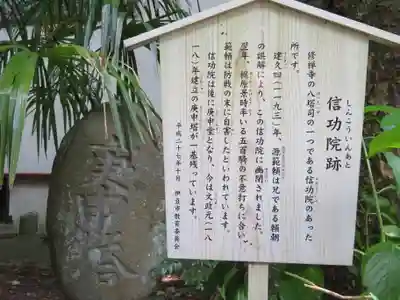 信功院跡
しんこういんあと
修禅寺の八塔司の一つである信功院のあった
所です。
建久四(一一九三)年、源範頼は兄である頼朝
の誤解により、この信功院に幽閉されました。
翌年、梶原景時率いる五百騎の不意打ちに合い、
範頼は防戦の末に自害したといわれています。
信功院は後に庚申堂となり、今は文政元(一八
一八)年建立の庚申塔が一基残っています。
平成二十七年十月 伊豆市教育委員会
庚申塔